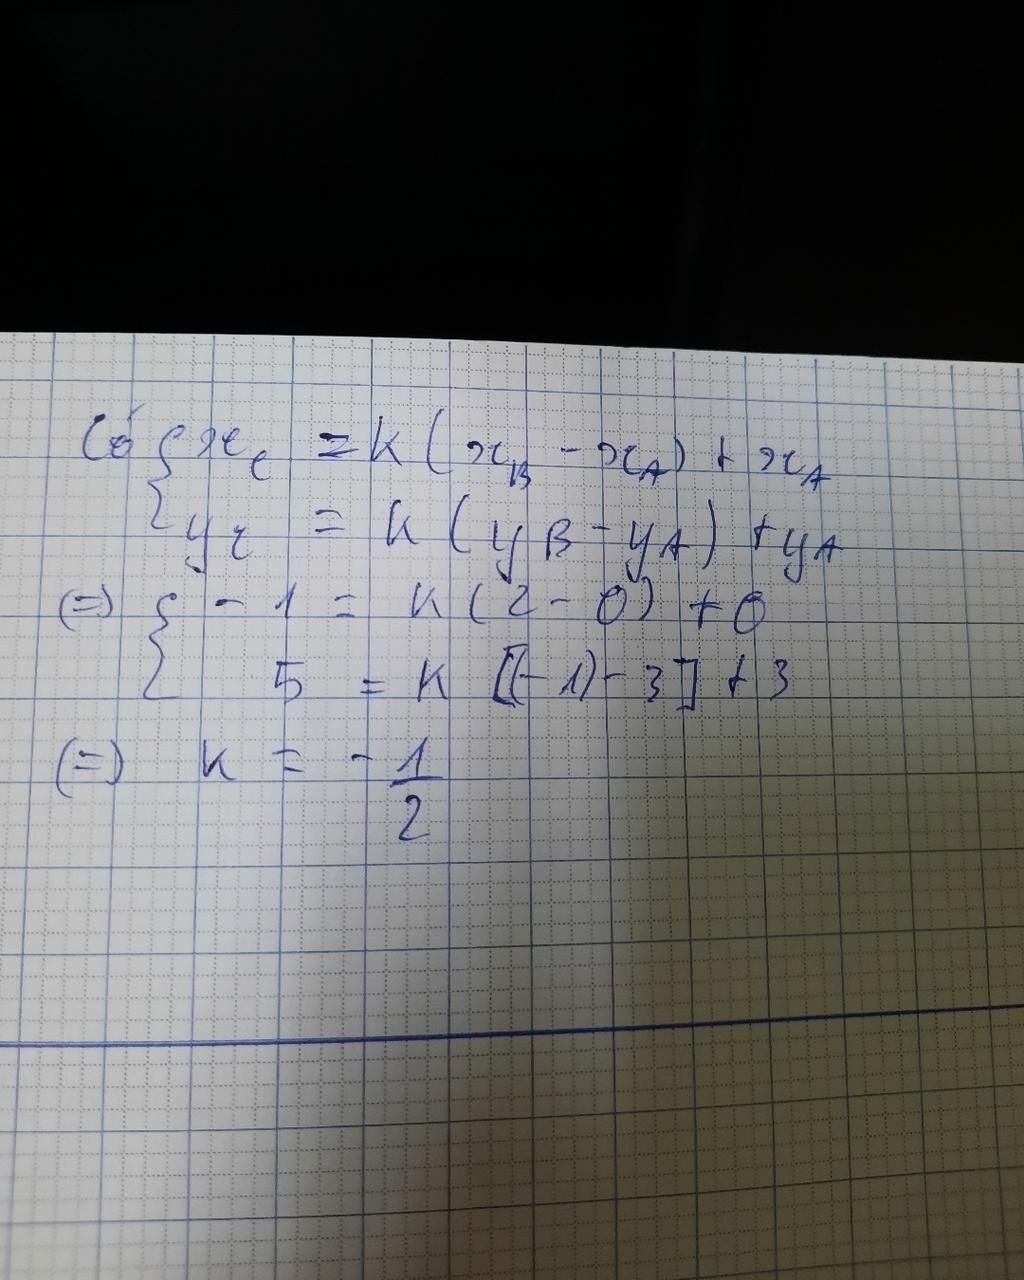 Có { x_C = k(x_B - x_A) + x_A
y_C = k(y_B - y_A) + y_A
(=) { -1 = k(2 - 0) + 0
5 = k[(-1) - 3] + 3
(=) k = -1/2